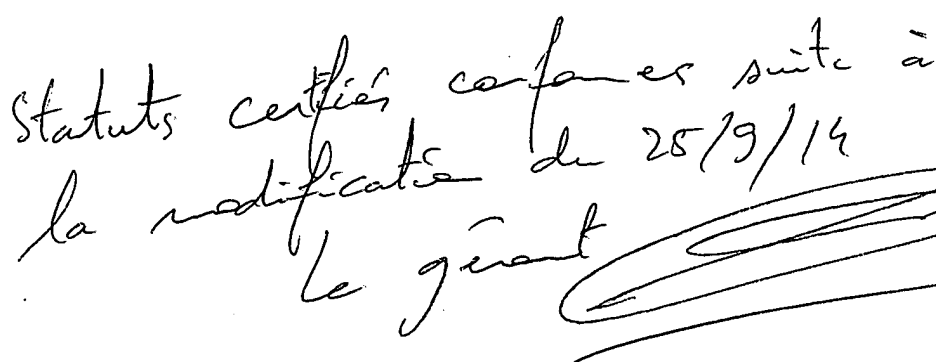 Statuts certifiés conformes suite à
la modification du 25/9/14
le gérant